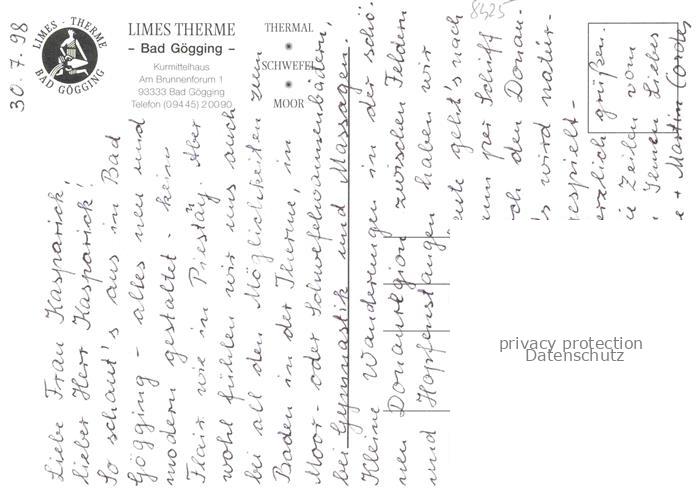 LIMES · THERME
BAD GÖGGING
LIMES THERME
- Bad Gögging -
Kurmittelhaus
Am Brunnenforum 1
93333 Bad Gögging
Telefon (09445) 20090
THERMAL
SCHWEFEL
MOOR
8425
30.7.98
Liebe Frau Kasparick,
lieber Herr Kasparick!
So schaut's aus in Bad
Gögging - alles neu und
modern gestaltet - kein
Flair wie in Piestany. Aber
wohl fühlen wir uns auch
bei all den Möglichkeiten zum
Baden in der Therme, in
Moor- oder Schwefelwannenbädern,
bei Gymnastik und Massagen.
Kleine Wanderungen in der schö-
nen Donauregion zwischen Feldern
und Hopfenstangen haben wir
ute geht's nach
um per Schiff
ch den Donau-
's wird natür-
espielt-
erzlich grüßen.
e Zeilen vom
Liebes
e + Martin Cordes
privacy protection
Datenschutz